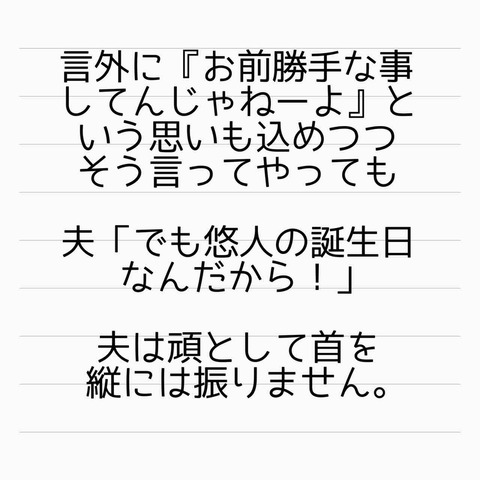 言外に『お前勝手な事
してんじゃねーよ』と
いう思いも込めつつ
そう言ってやっても
夫「でも悠人の誕生日
なんだから！」
夫は頑として首を
縦には振りません。